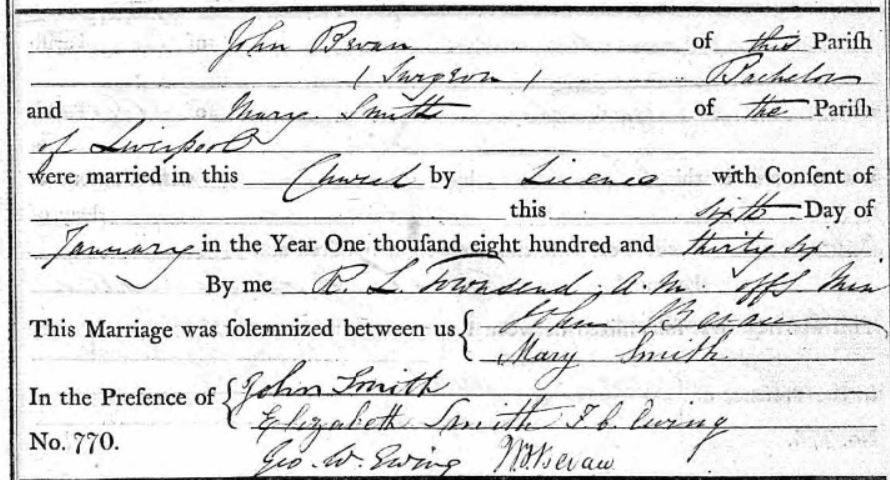 John Bevan of this Pariſh
( Surgeon ) Bachelor
and Mary Smith of the Pariſh
of Liverpool
were married in this Church by Licence with Conſent of
this sixth Day of
January in the Year One thouſand eight hundred and thirty six
By me R. L. Townsend A.M. offg Min
This Marriage was ſolemnized between us { John Bevan
Mary Smith
In the Preſence of { John Smith
Elizabeth Smith F. C. Ewing
No. 770.
Geo. W. Ewing Bevan